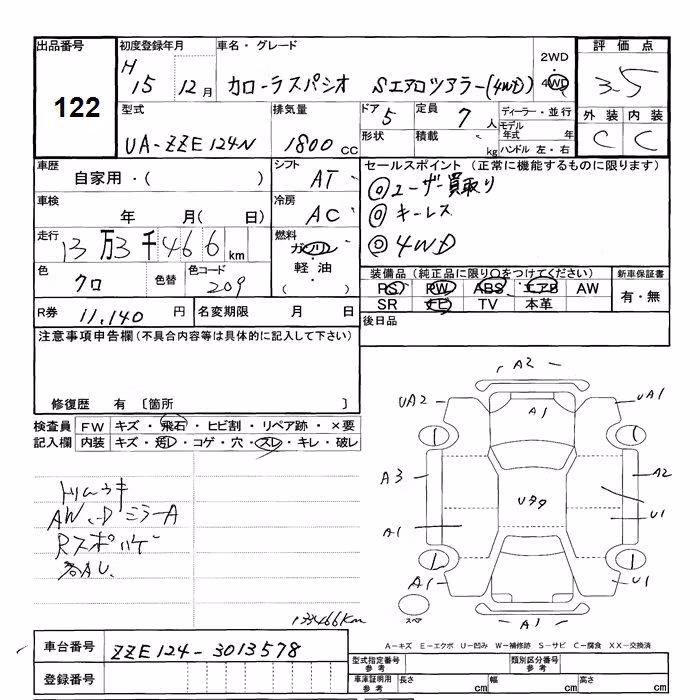 出品番号 初度登録年月 車名・グレード 2WD 評価点
122 H 15 12月 カローラスパシオ Sエアロツアラー(4WD) ・4WD 3.5
型式 排気量 ドア 5 定員 7 人 ディーラー・並行 外装 内装
UA-ZZE124N 1800 CC 形状 積載 kg モデル年式 年 C C
ハンドル 左・右
車歴 シフト セールスポイント (正常に機能するものに限ります)
自家用・( ) AT ◎ユーザー買取り
車検 冷房 ◎キーレス
年 月( 日) AC ◎4WD
走行 13万3千466 km 燃料 ガソリン・軽油・( )
装備品 (純正品に限り○をつけてください) 新車保証書
色 クロ 色替 色コード 209 PS PW ABS エアB AW 有・無
SR ナビ TV 本革
R券 11,140 円 名変期限 月 日 後日品
注意事項申告欄 (不具合内容等は具体的に記入して下さい)
修復歴 有 〔箇所 〕
検査員 FW キズ・飛石・ヒビ割・リペア跡・×要
記入欄 内装 キズ・汚レ・コゲ・穴・スレ・キレ・破レ
AW、Dミラー A
各AU.
133466Km
A2
UA2 A1 UA1
A3 A2
A1 U1
A1 U1
A1
スペア
A-キズ E-エクボ U-凹み W-補修跡 S-サビ C-腐食 XX-交換済
車台番号 ZZE124-3013578
登録番号
型式指定番号 参考 類別区分番号 参考
車庫証明用 参考 長さ cm 幅 cm 高さ cm